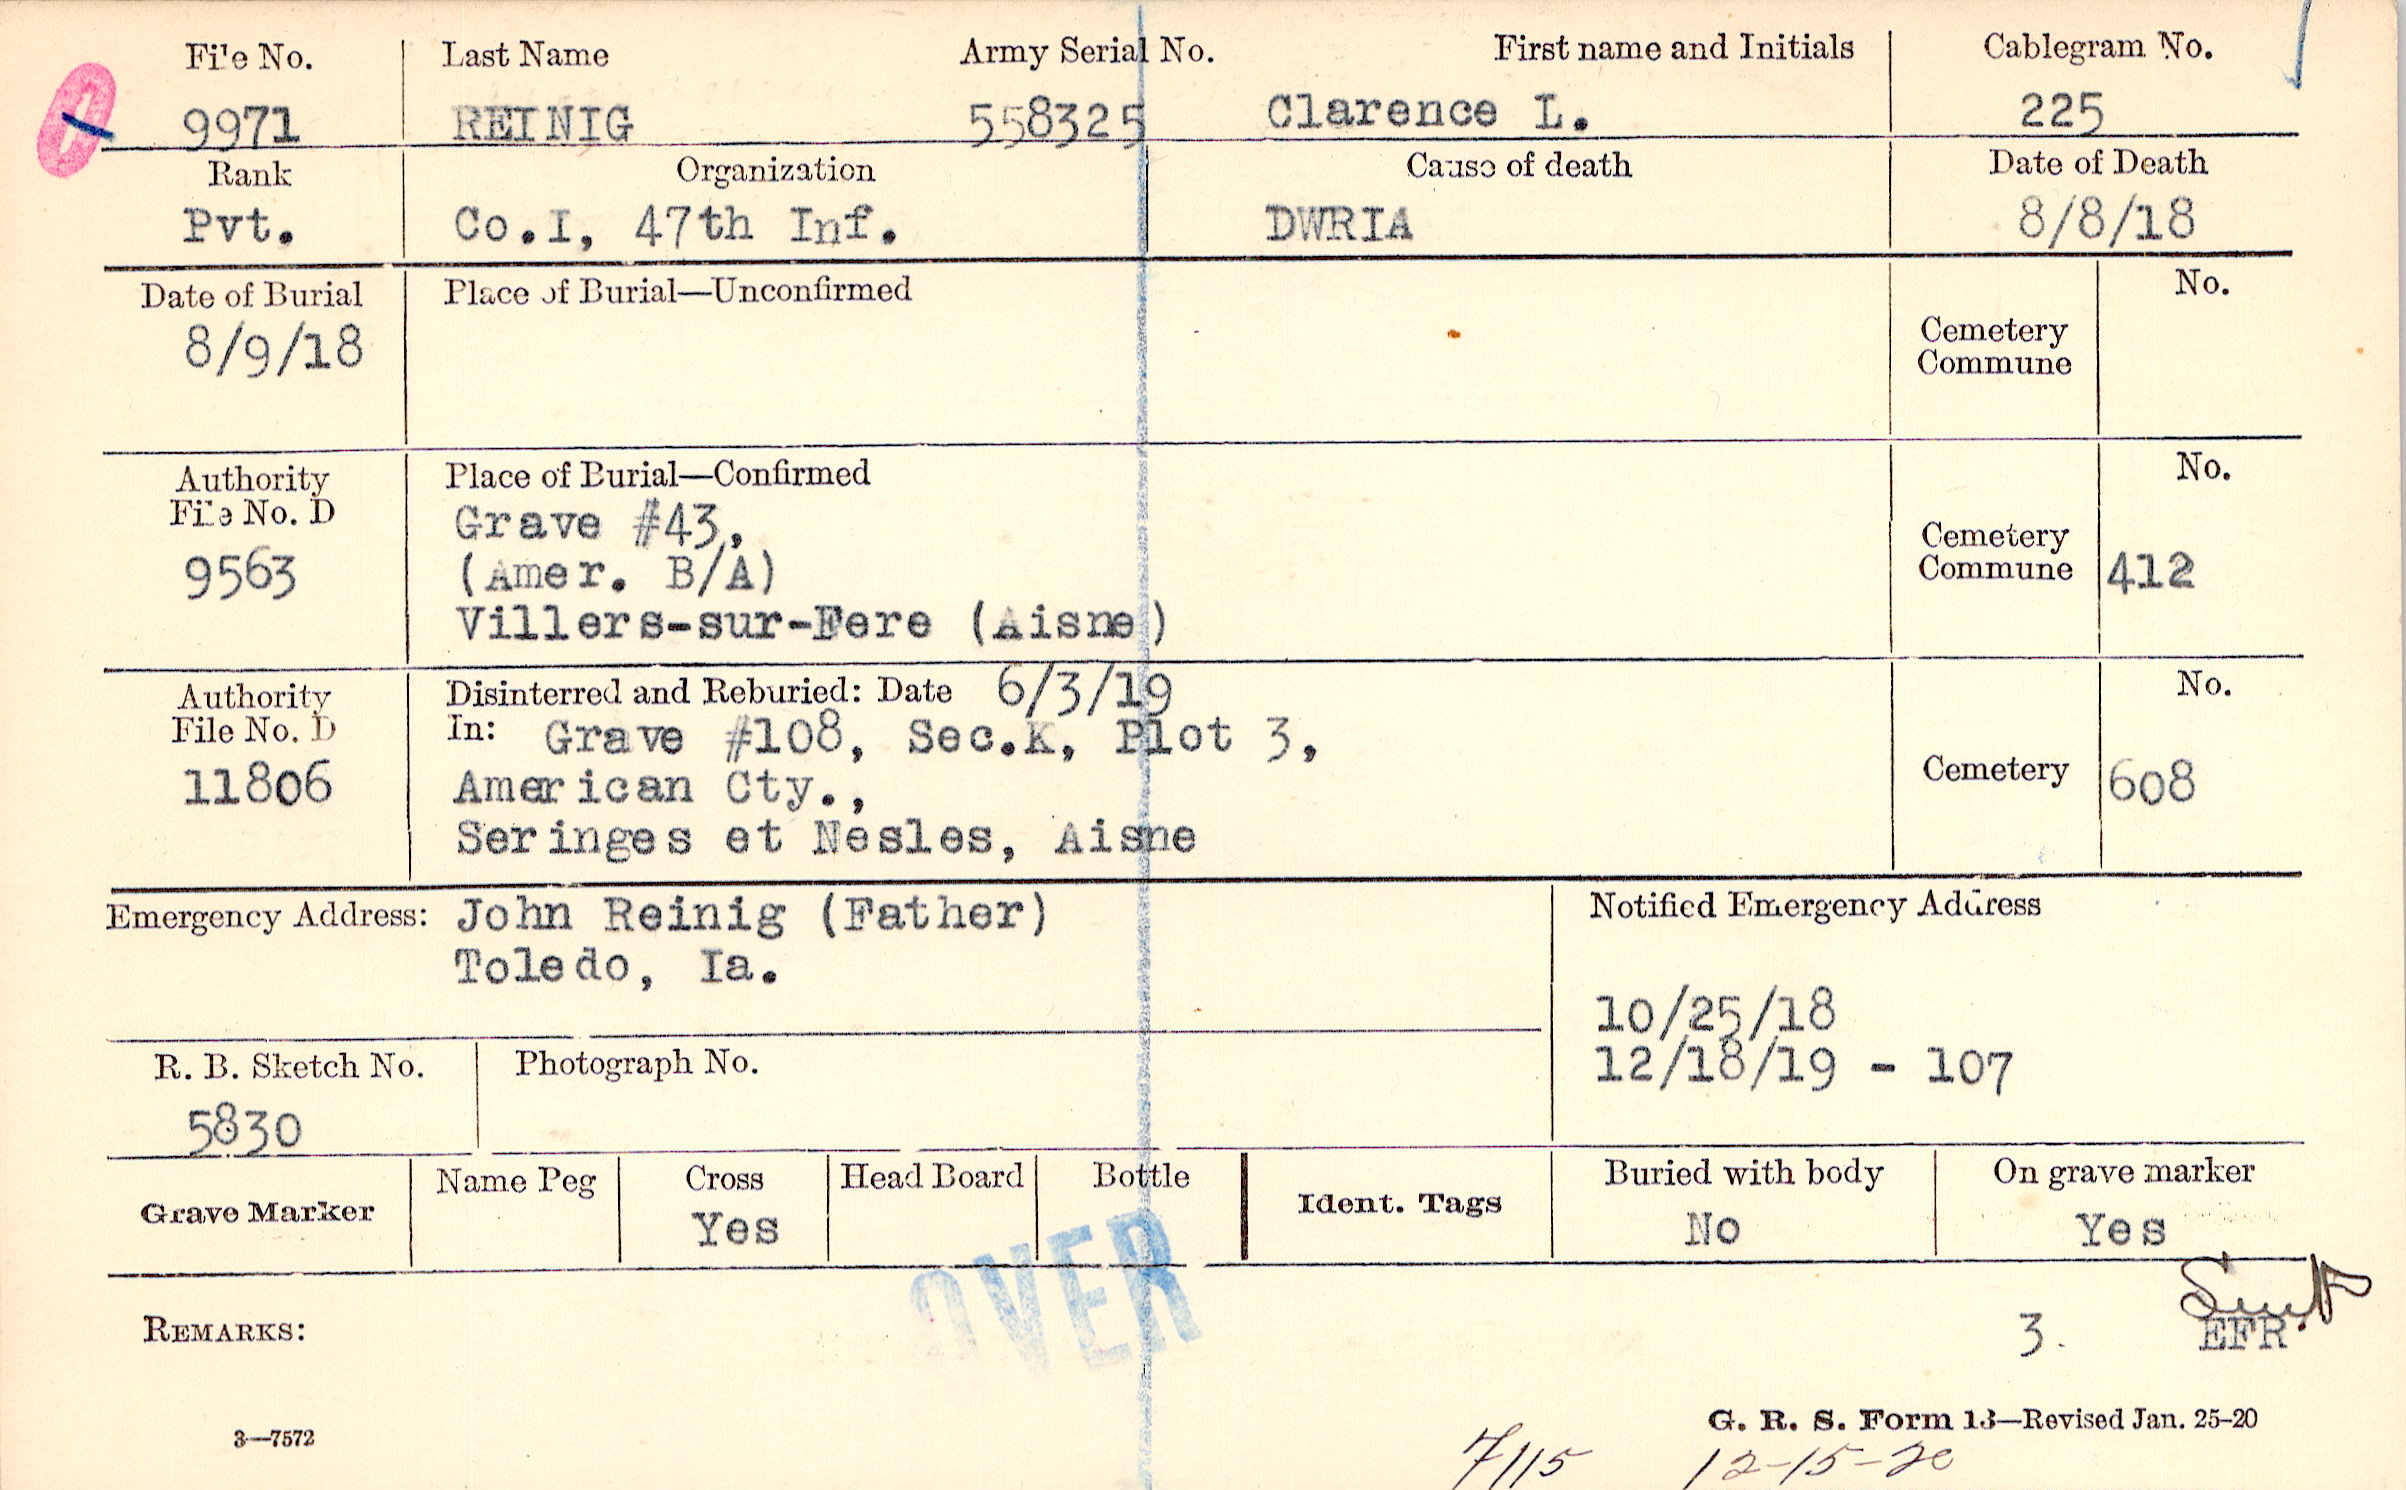 File No. Last Name Army Serial No. First name and Initials Cablegram No.
9971 REINIG 558325 Clarence L. 225
Rank Organization Cause of death Date of Death
Pvt. Co.I, 47th Inf. DWRIA 8/8/18
Date of Burial Place of Burial—Unconfirmed No.
8/9/18 Cemetery
Commune
Authority Place of Burial—Confirmed No.
File No. D Grave #43, Cemetery
9563 (Amer. B/A) Commune 412
Villers-sur-Fere (Aisne)
Authority Disinterred and Reburied: Date 6/3/19 No.
File No. D In: Grave #108, Sec.K, Plot 3,
11806 American Cty., Cemetery 608
Seringes et Nesles, Aisne
Emergency Address: John Reinig (Father) Notified Emergency Address
Toledo, Ia.
10/25/18
12/18/19 - 107
R. B. Sketch No. Photograph No.
5830
Grave Marker Name Peg Cross Head Board Bottle Ident. Tags Buried with body On grave marker
Yes No Yes
OVER
REMARKS: 3. EFR.
G. R. S. Form 13—Revised Jan. 25-20
3—7572
7115 12-15-20